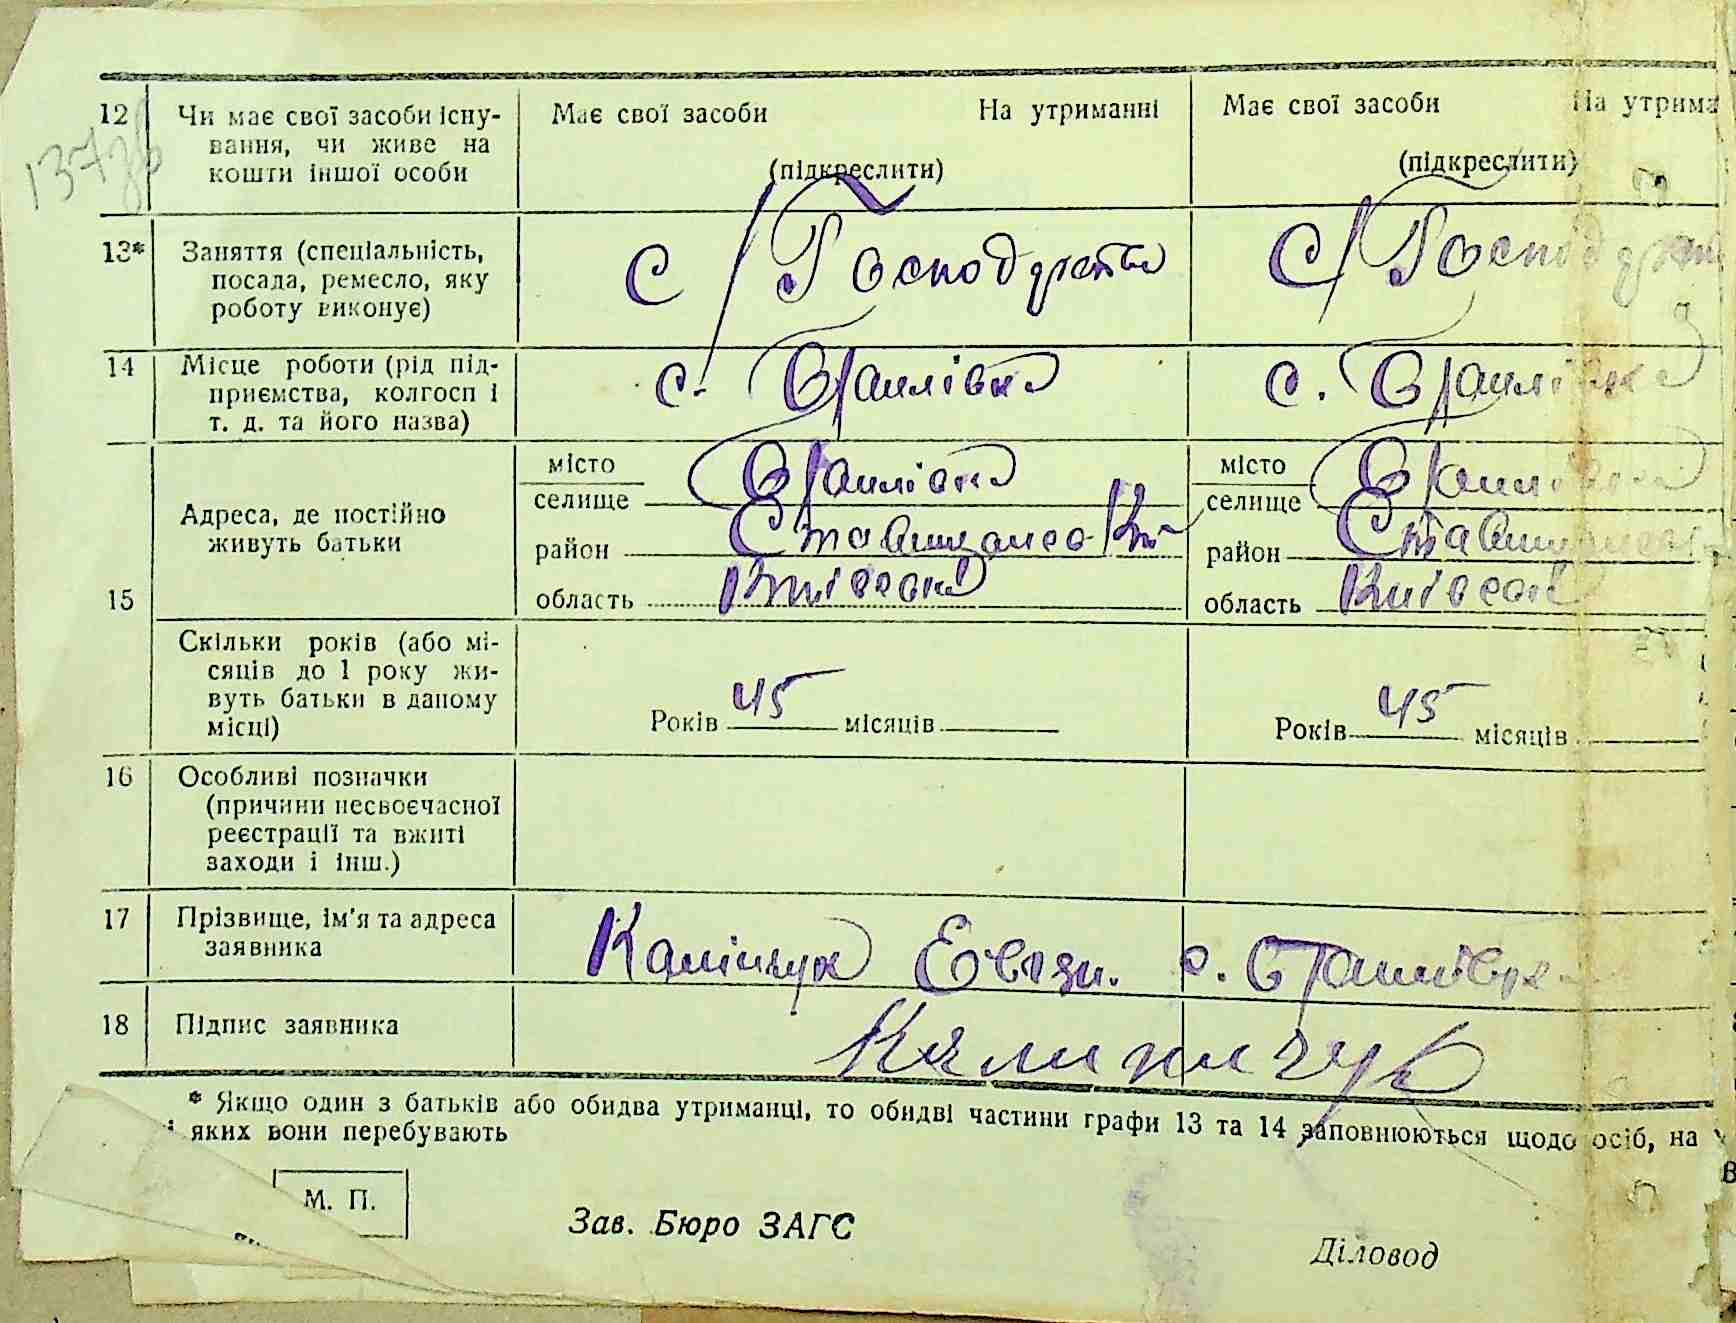 137зв
12 Чи має свої засоби існу-
вання, чи живе на
кошти іншої особи
Має свої засоби На утриманні
(підкреслити)
Має свої засоби На утрима
(підкреслити)
13* Заняття (спеціальність,
посада, ремесло, яку
роботу виконує)
С/Господрство
С/Господ
14 Місце роботи (рід під-
приємства, колгосп і
т. д. та його назва)
с.
с.
15 Адреса, де постійно
живуть батьки
місто
селище
район
область Київська
місто
селище
район
область Київська
Скільки років (або мі-
сяців до 1 року жи-
вуть батьки в даному
місці)
Років 45 місяців
Років 45 місяців
16 Особливі позначки
(причини несвоєчасної
реєстрації та вжиті
заходи і інш.)
17 Прізвище, ім'я та адреса
заявника
с.
18 Підпис заявника
Калиничук
* Якщо один з батьків або обидва утриманці, то обидві частини графи 13 та 14 заповнюються щодо осіб, на
яких вони перебувають
М. П.
Зав. Бюро ЗАГС
Діловод